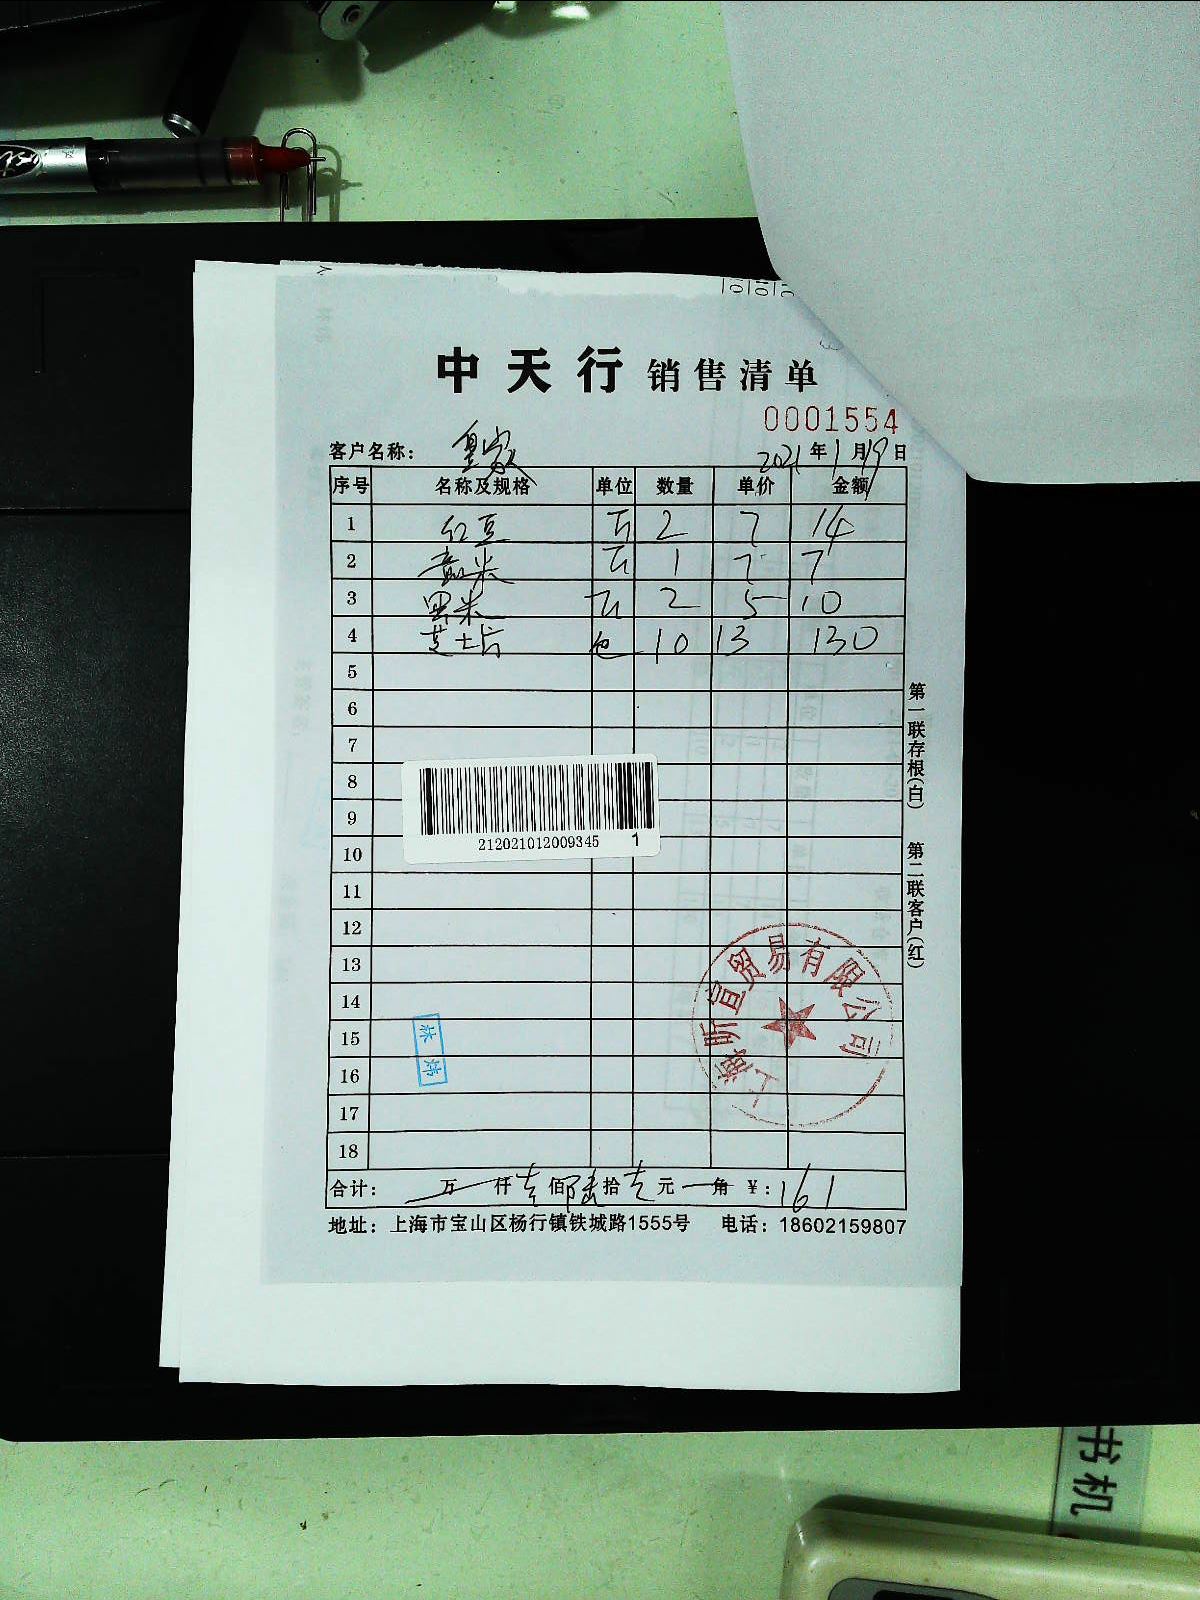 中天行 销售清单
0001554
客户名称： 皇家 2021年1月19日
序号 名称及规格 单位 数量 单价 金额
1 红豆 斤 2 7 14
2 米 斤 1 7 7
3 黑米 斤 2 5 10
4 芝士片 包 10 13 130
5
6
7
8
9
10
11
12
13
14
15
16
17
18
212021012009345 1
第一联存根(白) 第二联客户(红)
上海昕宜贸易有限公司
合计： 万 仟 壹 佰 陆 拾 壹 元 角 ￥：161
地址：上海市宝山区杨行镇铁城路1555号 电话：18602159807
书机